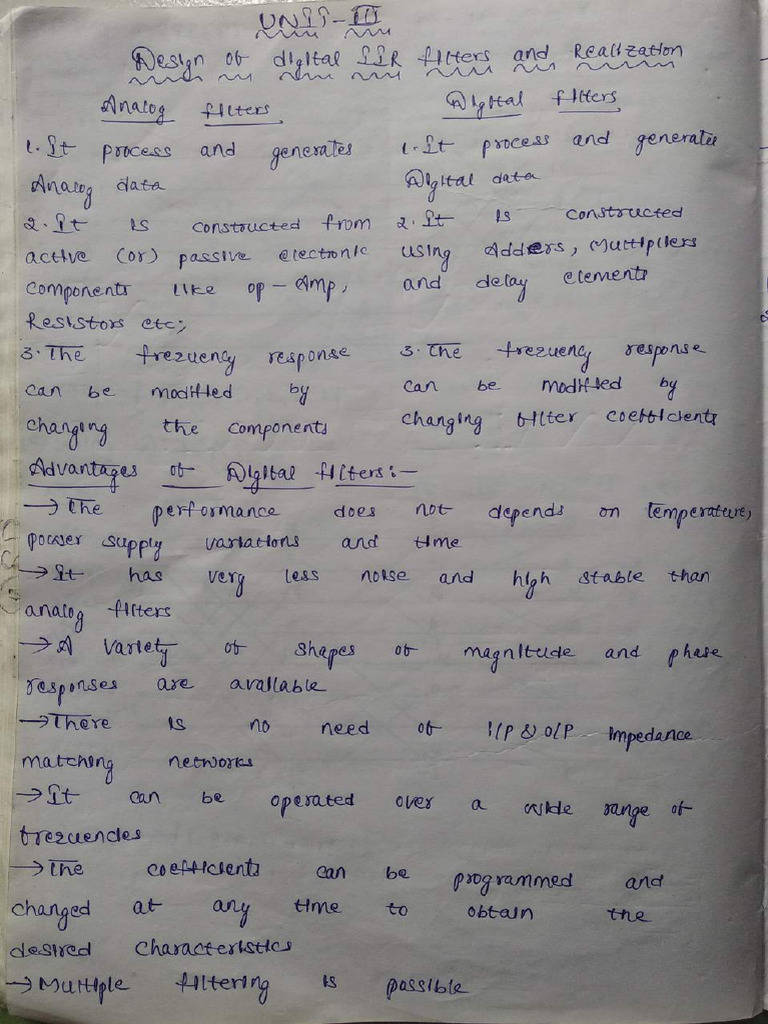 UNIT-III
Design of digital IIR filters and Realization
Analog filters
1. It process and generates
Analog data
2. It is constructed from
active (or) passive electronic
components like op-Amp,
Resistors etc;
3. The frequency response
can be modified by
changing the components
Digital filters
1. It process and generates
Digital data
2. It is constructed
using Adders, Multipliers
and delay elements
3. The frequency response
can be modified by
changing filter coefficients
Advantages of Digital filters:-
→ The performance does not depends on temperature,
power supply variations and time
→ It has very less noise and high stable than
analog filters
→ A variety of shapes of magnitude and phase
responses are available
→ There is no need of I/P & O/P impedance
matching networks
→ It can be operated over a wide range of
frequencies
→ The coefficients can be programmed and
changed at any time to obtain the
desired characteristics
→ Multiple filtering is possible